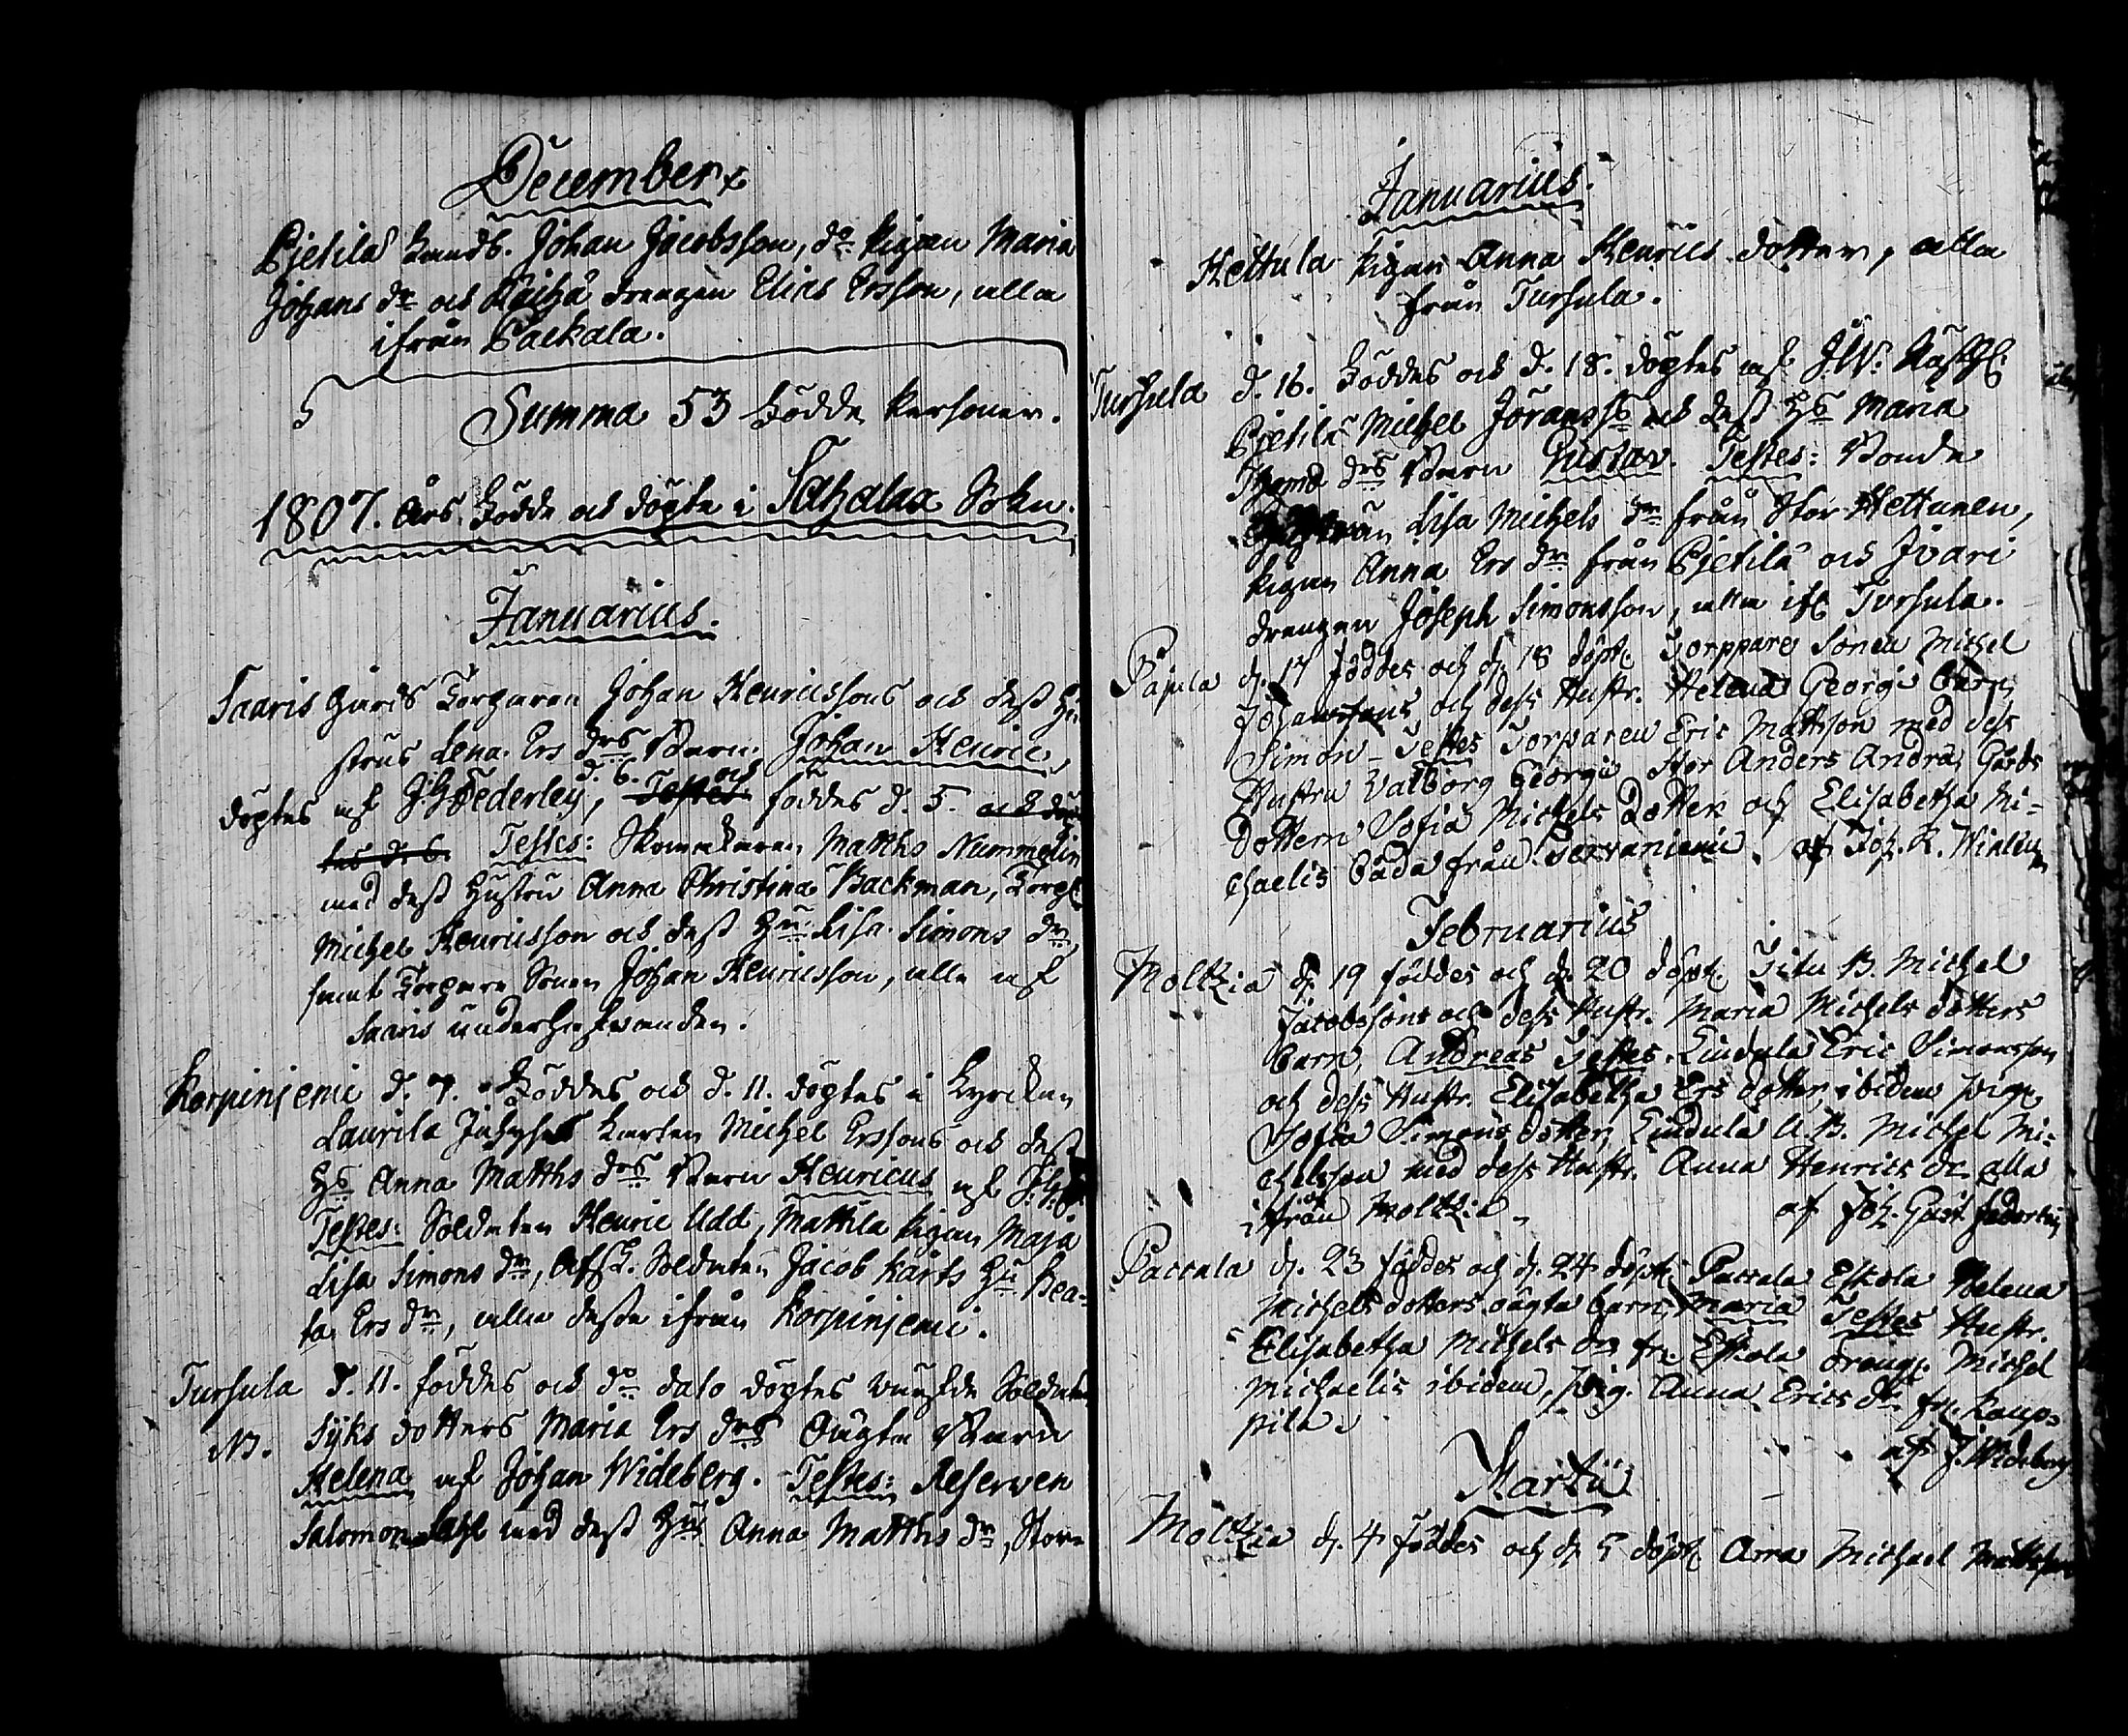 December
Pjetilä Landb. Johan Jacobsson, do pigan Maria
Johans dr och Räihä drengen Elias Ersson, alla
ifrån Packala.
Summa 53 födde personer.
1807. Års födde och döpte i Sahalax Sokn.
Januarius.
Saaris Gårds Torparen Johan Henricssons och dess Hu
strus Lena Ers drs Barn Johan Henric,
d. 6. och
döptes af J G Federley, Testes föddes d. 5. och döp
tes d. 6. Testes: Skomakaren Matths Nummelin
med dess Hustru Anna Christina Backman, Torp.
Michel Henricsson och dess Hu Lisa Simons dr
samt Torpare Sonen Johan Henricsson, alla af
Saaris underhafvanden.
Korpinjemi d. 7. Föddes och d. 11. döptes i Kyrckan
Laurila Inhyses karlen Michel Erssons och dess
Hs Anna Matths drs Barn Henricus af J. G.
Testes: Soldaten Henric Udd, Mattila pigan Maja
Lisa Simons dr, Afsk. Soldaten Jacob Kårts Hu Bea-
ta Ers dr, alla desse ifrån Korpinjemi.
Tursula d. 11. föddes och do dato döptes Soldaten
NB. Syks dotters Maria Ers drs Oägta Barn
Helena af Johan Wideberg. Testes: Reserven
Salomon med dess Hu Anna Matths dr, Stor-
Januarius.
Hettula pigan Anna Henrics dotter, alla
från Tursula.
Tursula d. 16. Föddes och d. 18. döptes af J. W.
Pjetilä Michel Jöransss och dess Hs Maria
drs Barn Gustav. Testes: Bonde
Lisa Michels dr från Stor Hettunen,
pigan Anna Ers dr från Pjetilä och Ivari
drengen Joseph Simonsson, alla ifr Tursula.
Pajula d. 17 föddes och d. 18 döpt. Torppare Sonen Michel
Johanssons och dess Hustr. Helena Georgii barn,
Simon Testes Torparen Eric Mattsson med dess
Hustru Valborg Georgii Stor Anders Andra Gårds
Dottern Sofia Michels Dotter och Elisabetha Mi-
chaelis båda från. af Joh. R.
Februarius
Moltzia d. 19 föddes och d. 20 döpt. Titu B. Michel
Jacobssons och dess Hustr. Maria Michels dotters
barn, Andreas Testes. Lindula Eric Simonsson
och dess Hustr. Elisabetha Ers dotter, ibidem pig.
Sofia Simons dotter, Lindula U. B. Michel Mi-
chelsson med dess Hustr. Anna Henrics dr alla
ifrån Moltzia. af Joh. Gust. Federley
Paccala d. 23 föddes och d. 24 döpt. Paccala Eskola Helena
Michels dotters oägta barn, Maria Testes Hustr.
Elisabetha Michels dr fr. Eskola dräng. Michel
Michaelis ibidem, pig. Anna Erics dr fr. Kaup-
pila. af J. Wideberg
Martii
Moltzia d. 4 föddes och d. 5 döpt. Arra Michael Mattsson